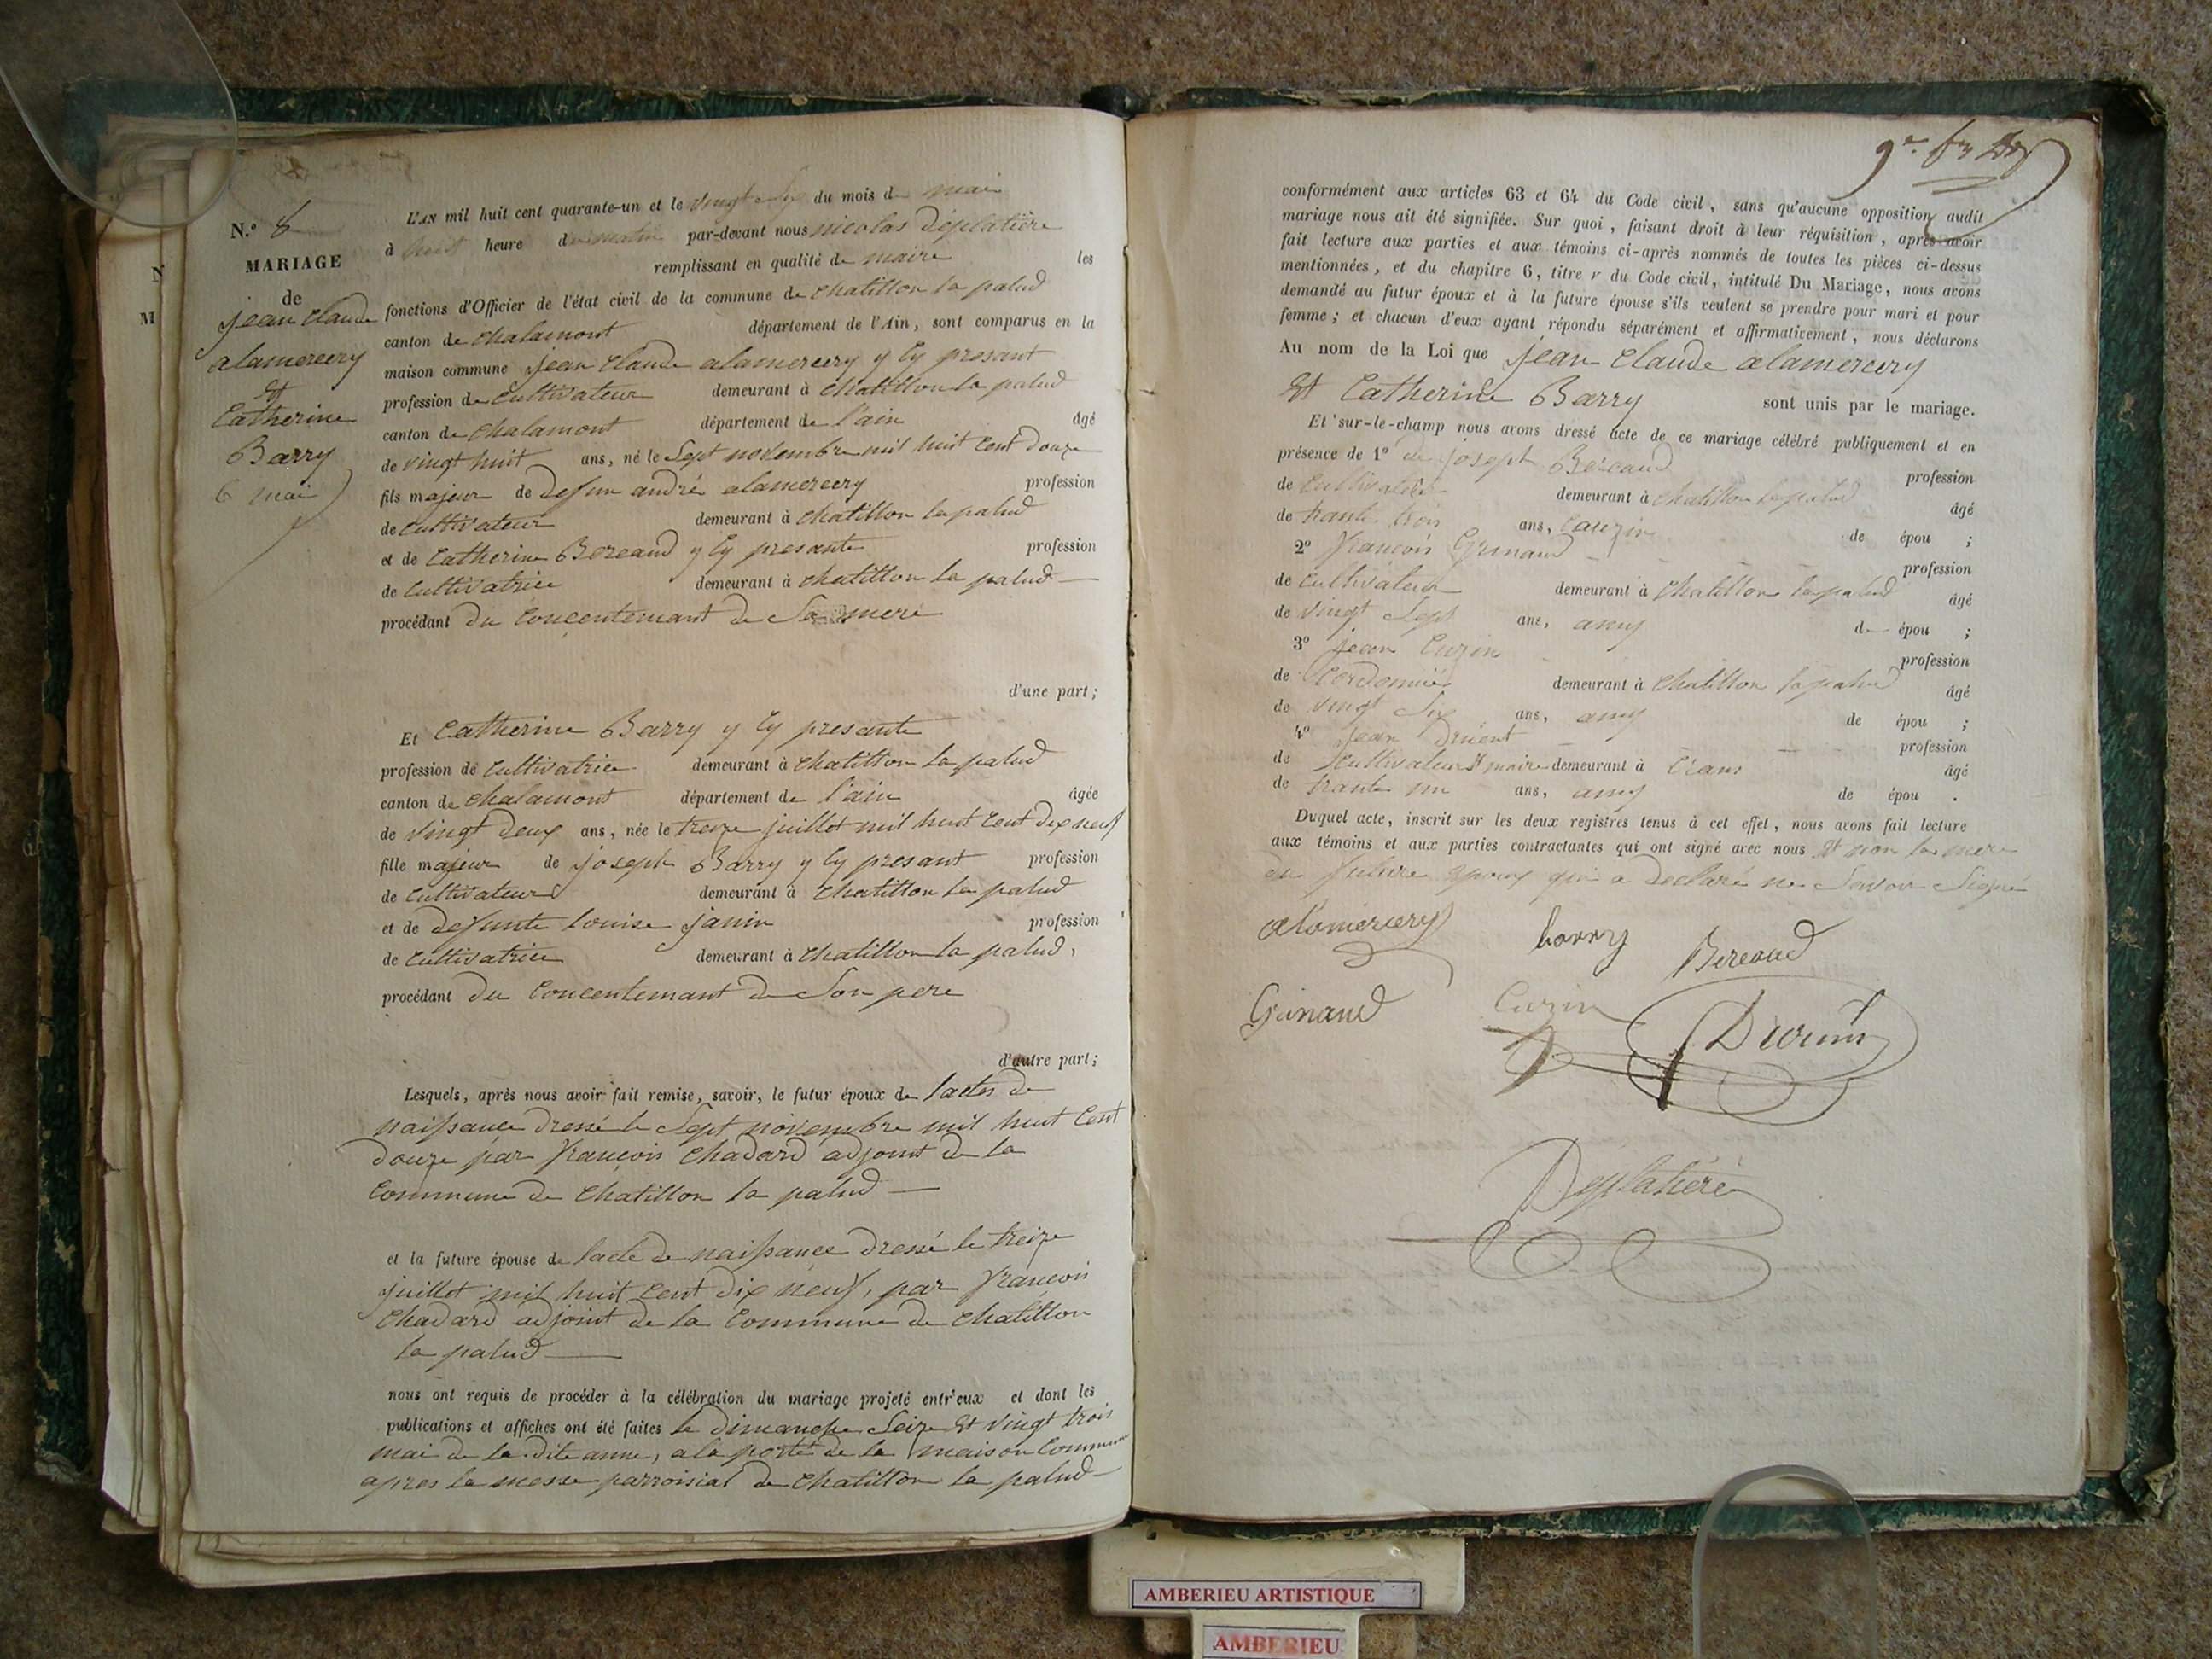 N.º 8
MARIAGE
de
jean claude
alamercery
Et
Catherine
Barry
6 mai
N
M
L'AN mil huit cent quarante-un et le vingt six du mois de mai
à huit heure du matin par-devant nous nicolas Déplatière
remplissant en qualité de maire les
fonctions d'Officier de l'état civil de la commune de chatillon la palud
canton de chalamont département de l'Ain, sont comparus en la
maison commune jean claude alamercery y Cy presant
profession de Cultivateur demeurant à chatillon la palud
canton de chalamont département de l'ain âgé
de vingt huit ans, né le Sept novembre mil huit Cent douze
fils majeur de defun andré alamercery profession
de Cultivateur demeurant à chatillon la palud
et de Catherine Bereaud y Cy presante profession
de Cultivatrice demeurant à chatillon la palud
procédant du Concentemant de Sa mere
d'une part;
Et Catherine Barry y Cy presante
profession de Cultivatrice demeurant à chatillon la palud
canton de chalamont département de l'ain âgée
de vingt deux ans, née le treize juillet mil huit Cent dix neuf
fille majeur de joseph Barry y Cy presant profession
de Cultivateur demeurant à chatillon la palud
et de defunte louise janin profession
de Cultivatrice demeurant à chatillon la palud,
procédant du Concentemant de Son pere
d'autre part;
Lesquels, après nous avoir fait remise, savoir, le futur époux de lactes de
naissance dressé le Sept novembre mil huit Cent
douze par francois Chadard adjoint de la
Commune de Chatillon la palud
et la future épouse de lacte de naissance dressé le treize
juillet mil huit Cent dix neuf, par francois
Chadard adjoint de la Commune de chatillon
la palud
nous ont requis de procéder à la célébration du mariage projeté entr'eux et dont les
publications et affiches ont été faites le Dimanche Seize Et vingt trois
mai de la dite anne, a la porte de la maison Commune
apres la messe parroisial de chatillon la palud
conformément aux articles 63 et 64 du Code civil, sans qu'aucune opposition audit
mariage nous ait été signifiée. Sur quoi, faisant droit à leur réquisition, après avoir
fait lecture aux parties et aux témoins ci-après nommés de toutes les pièces ci-dessus
mentionnées, et du chapitre 6, titre v du Code civil, intitulé Du Mariage, nous avons
demandé au futur époux et à la future épouse s'ils veulent se prendre pour mari et pour
femme; et chacun d'eux ayant répondu séparément et affirmativement, nous déclarons
Au nom de la Loi que jean claude alamercery
Et Catherine Barry sont unis par le mariage.
Et sur-le-champ nous avons dressé acte de ce mariage célébré publiquement et en
présence de 1º de joseph Bereaud profession
de Cultivateur demeurant à chatillon la palud âgé
de trante trois ans, Cauzin de épou ;
2º francois Grinand profession
de Cultivateur demeurant à chatillon la palud âgé
de vingt Sept ans, amy de épou ;
3º jean Cuzin profession
de Cordonnié demeurant à chatillon la palud âgé
de vingt Six ans, amy de épou ;
4º jean Druent profession
de Cultivateur Et maire demeurant à Crans âgé
de trante un ans, amy de épou .
Duquel acte, inscrit sur les deux registres tenus à cet effet, nous avons fait lecture
aux témoins et aux parties contractantes qui ont signé avec nous Et non la mere
du future Epoux qui a declaré ne Savoir Signé
alamercery barry Bereaud
Grinand Cuzin
Deplatière
AMBERIEU ARTISTIQUE
AMBERIEU